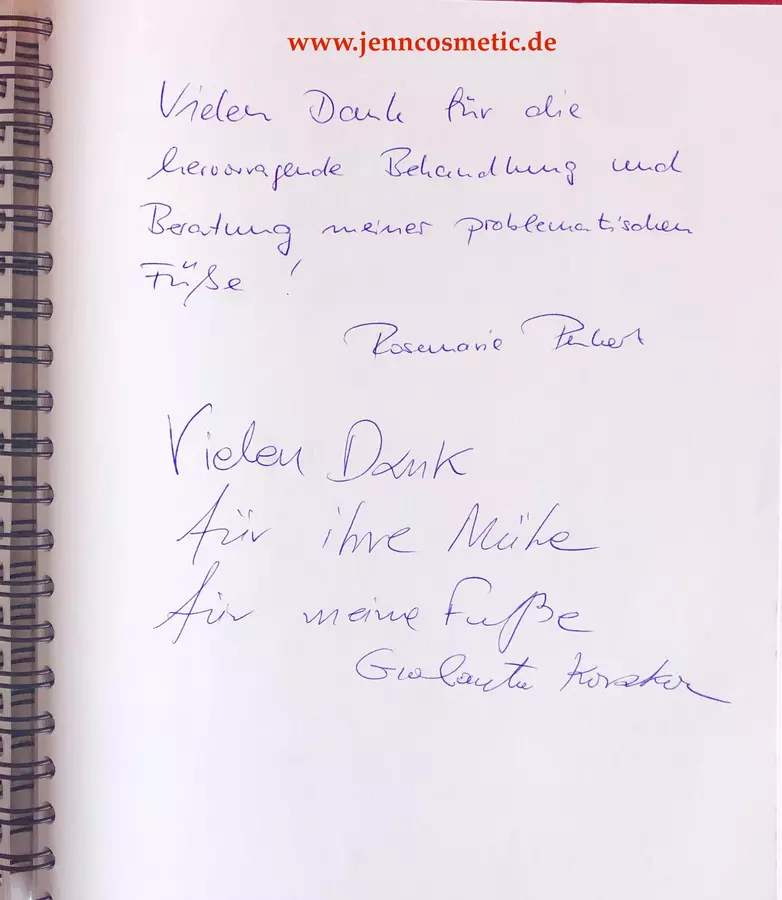 www.jenncosmetic.de
Vielen Dank für die
hervorragende Behandlung und
Beratung meiner problematischen
Füße !
Rosemarie
Vielen Dank
für ihre Mühe
für meine Fuße